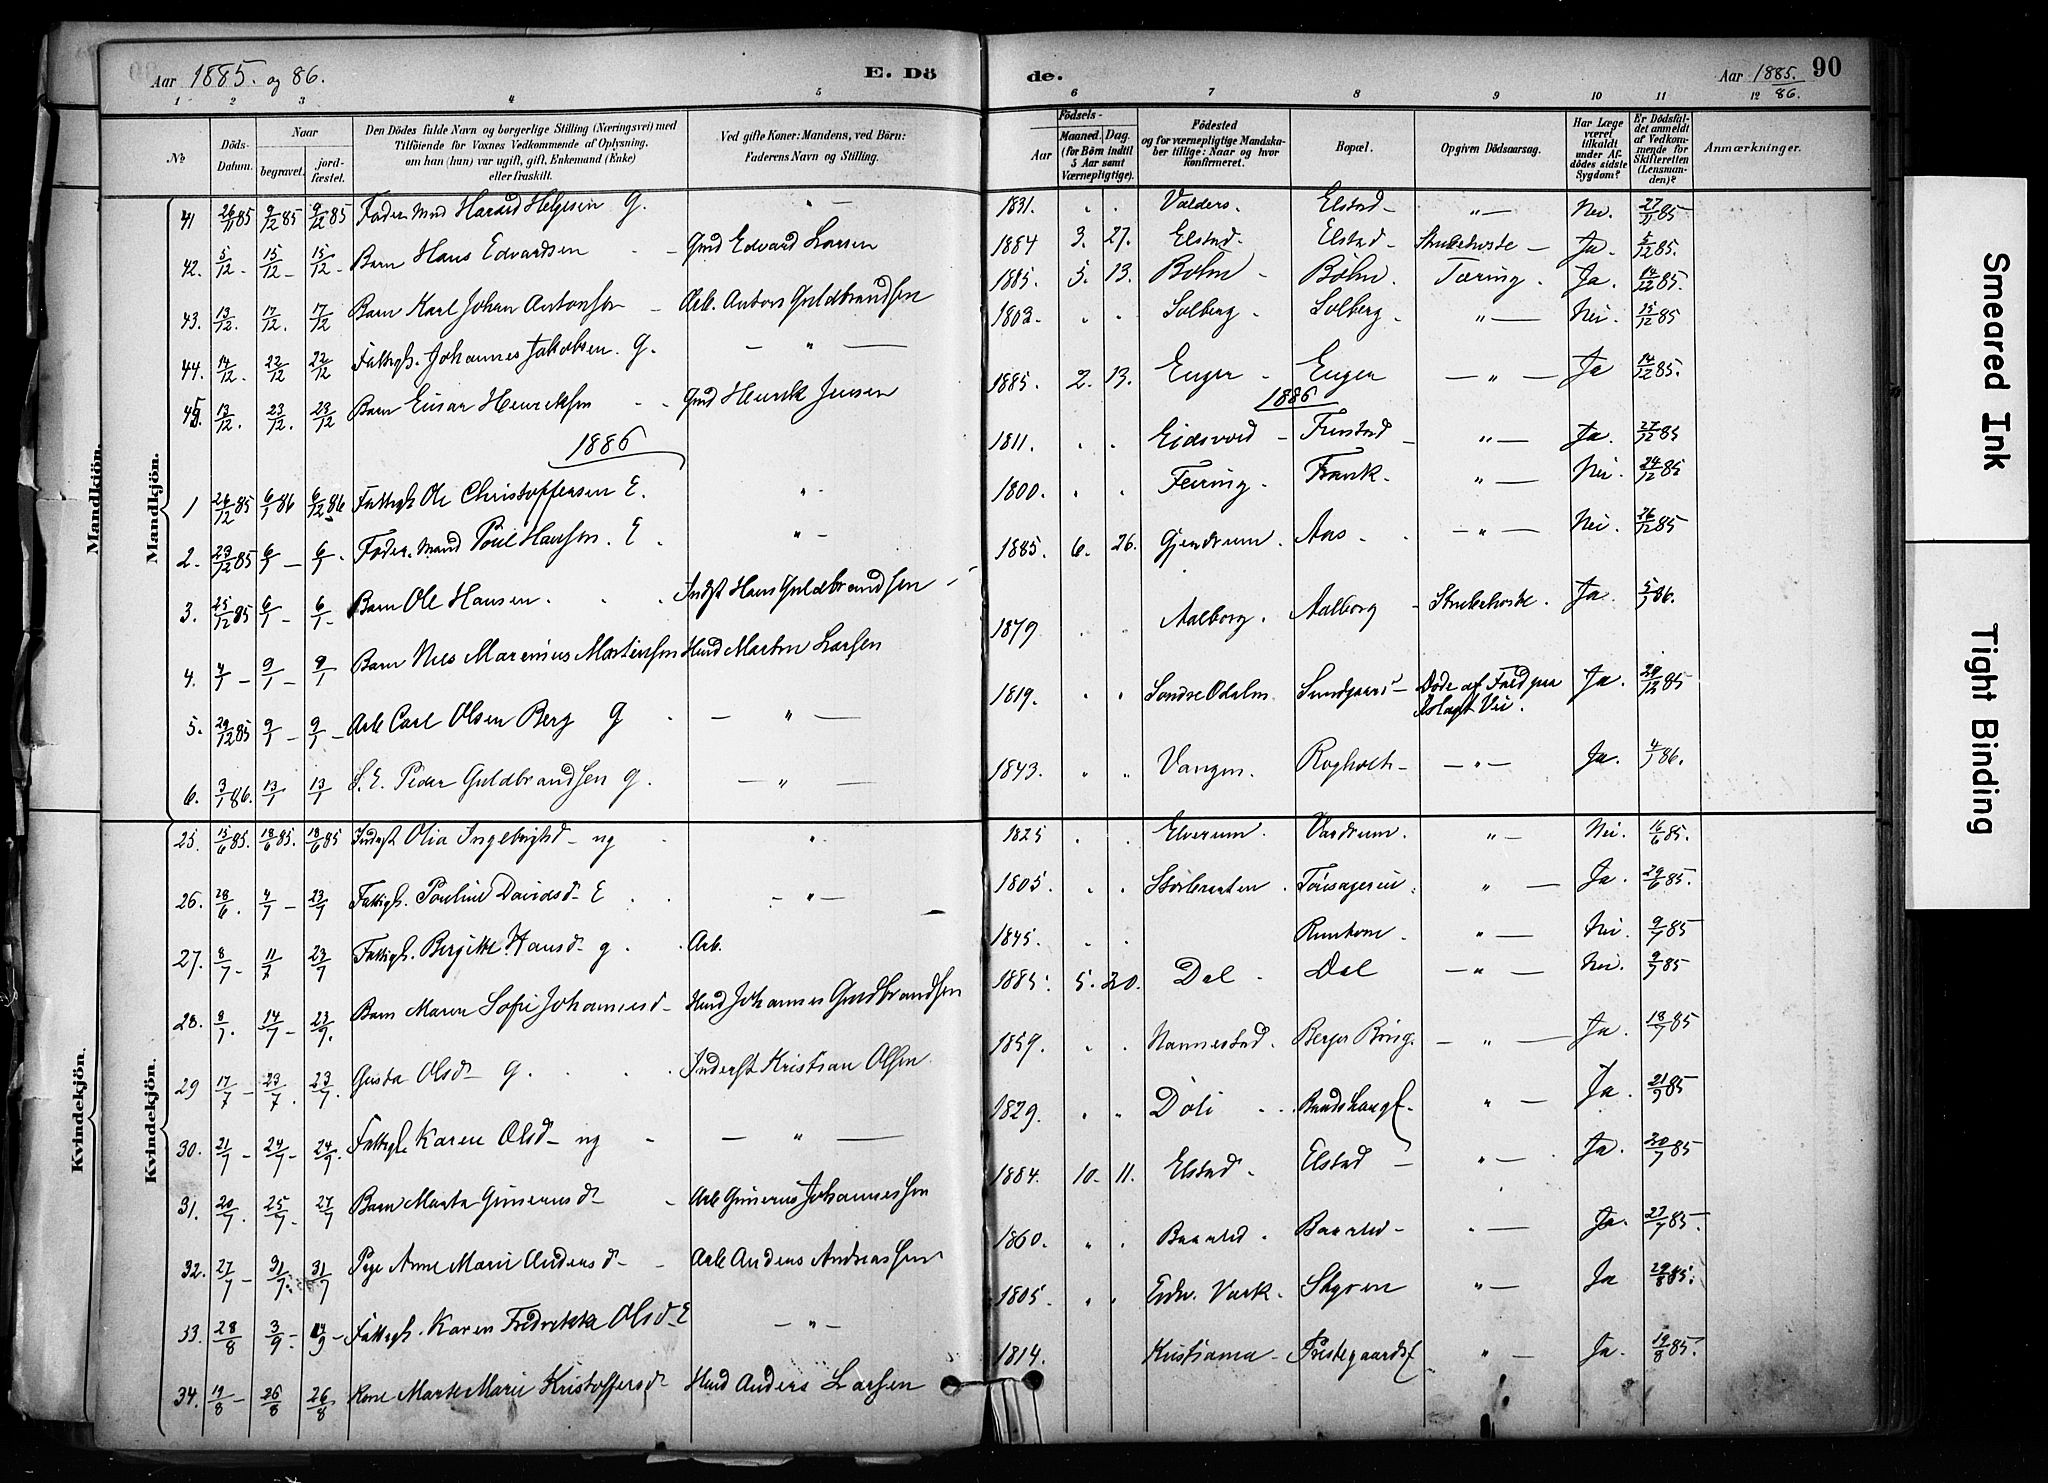 Aar 1885. og 86.
E. Dö
de.
Aar 1885. 86.
90
1 2 3 4 5
6 7 8 9 10 11 12
No
Döds-Datum.
Naar
begravet.
jord-fæstet.
Den Dödes fulde Navn og borgerlige Stilling (Næringsvei) med
Tilföiende for Voxnes Vedkommende af Oplysning,
om han (hun) var ugift, gift, Enkemand (Enke)
eller fraskilt.
Ved gifte Koner: Mandens, ved Börn:
Faderens Navn og Stilling.
Aar
Födsels-
Maaned. Dag.
(for Börn indtil
5 Aar samt
Værnepligtige).
Födested
og for værnepligtige Mandska-
ber tillige: Naar og hvor
konfirmeret.
Bopæl.
Opgiven Dödsaarsag.
Har Læge
været
tilkaldt
under Af-
dödes sidste
Sygdom?
Er Dödsfal-
det anmeldt
af Vedkom-
mende for
Skifteretten
(Lensman-
den)?
Anmærkninger.
Mandkjön.
Mandkjön.
41 26/11 85 9/12 85 9/12 85 Foder.mand Harald Helgesen G. " — 1831. Valders. Elstad — " — Nei. 27/11 85
42. 5/12 - 15/12 - 15/12 - Barn Hans Edvardsen Gmd Edvard Larsen 1884 3. 27. Elstad. Elstad — Strubehoste — Ja. 5/12 85.
43. 13/12. 17/12. 17/12 Barn Karl Johan Antonsen — Arb. Anton Guldbrandsen 1885. 5. 13. Böhn — Böhn. Tæring. Ja. 14/12 85.
44. 14/12. 22/12 22/12 Fattigl. Johannes Jakobsen. G. — " — 1802. Solberg. Solberg. " — Nei. 15/12 85
45. 13/12. 23/12. 23/12 Barn Einar Henriksen Gmd Henrik Jensen 1885. 2. 13. Enger — Enger — " — Ja 14/12 85.
1886
1886
1 26/12 85 6/1 86 6/12 86 Fattigl Ole Christoffersen E. " - 1811. Eidsvold — Finstad — " — Ja. 27/12 85
2. 23/12 85 6/1 — 6/1 - Foder.mand Poul Hansen. E. " — 1800. Feiring. Frank. " — Nei. 24/12 85
3. 25/12 85 6/1 — 6/1 - Barn Ole Hansen. Indst Hans Guldbrandsen 1885. 6. 26. Gjerdrum. Aas. " — Nei. 26/12 85
4. 4/1 — 9/1 — 9/1 Barn Nils Marinius Martinsen Husmd Martin Larsen 1879 Aalborg. Aalborg — Strubehoste. Ja. 5/1 86.
5. 29/12 85 9/1 — 9/1 — Arb. Carl Olsen Berg G — " — 1819. Søndre Odalen. Sundgaard — Døde af Fald paa Islagt Vei. Ja. 29/12 85
6. 3/1 86. 13/1 13/1 S. E. Peder Guldbrandsen G. — " — 1843. Vangen. Rogholt — " — Ja. 4/1 86.
Kvindekjön.
Kvindekjön.
25. 15/6 85. 18/6 85. 18/6 85 Inderst Olia Ingebrigtsd — ug " 1825 Elverum. Vardrum. " — Nei. 16/6 85.
26. 28/6. 4/7 — 23/7 Fattigl. Pauline Davidsd — E — " — 1805. " — Ja. 29/6 85.
27. 8/7 11/7 23/7 Fattigl. Bergitte Hansd — g Arb. 1845. " — Nei. 9/7 85
28. 8/7. 14/7 — 23/7. Barn Maren Sofie Johannesd — Husmd Johannes Guldbrandsen 1885. 5. 20. Dal — Dal — " — Nei. 9/7 85
29 17/7 — 23/7. 23/7. Gusta Olsd — g. Inderst Kristian Olsen 1859. Nannestad. Berger — " — Ja. 18/7 85
30. 21/7 — 24/7 — 24/7. Fattigl. Karen Olsd — ug — " — 1829. Døli " — Ja. 21/7 85
31. 20/7. 25/7 — 27/7 Barn Marta Gunerusd — Arb Gunerus Johannessen 1884. 10. 11. Elstad. Elstad — " — Ja. 20/7 85
32. 27/7 — 31/7. 31/7 Pige Anne Marie Andersd — Arb Anders Andreassen 1860. Baarlid. Baarlid — " — Ja. 27/7 85.
33. 28/8 3/9 — 4/9 — Fattigl. Karen Fredrikke Olsd — E — " — 1805. Edsv. Værk. Styren " — Ja 29/8 85.
34. 19/8 — 26/8 26/8 Kone Marte Marie Kristoffersd — Husmd Anders Larsen 1814. Kristiania — Prestegaardsf " — Ja. 19/8 85.
Smeared Ink
Tight Binding